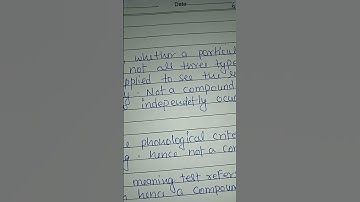 Date
whether a particul
not all three type
applied to see the se
y. Not a compound
independetly occu
phonological crite
g. hence not a com
meaning test refer
hence a compoun